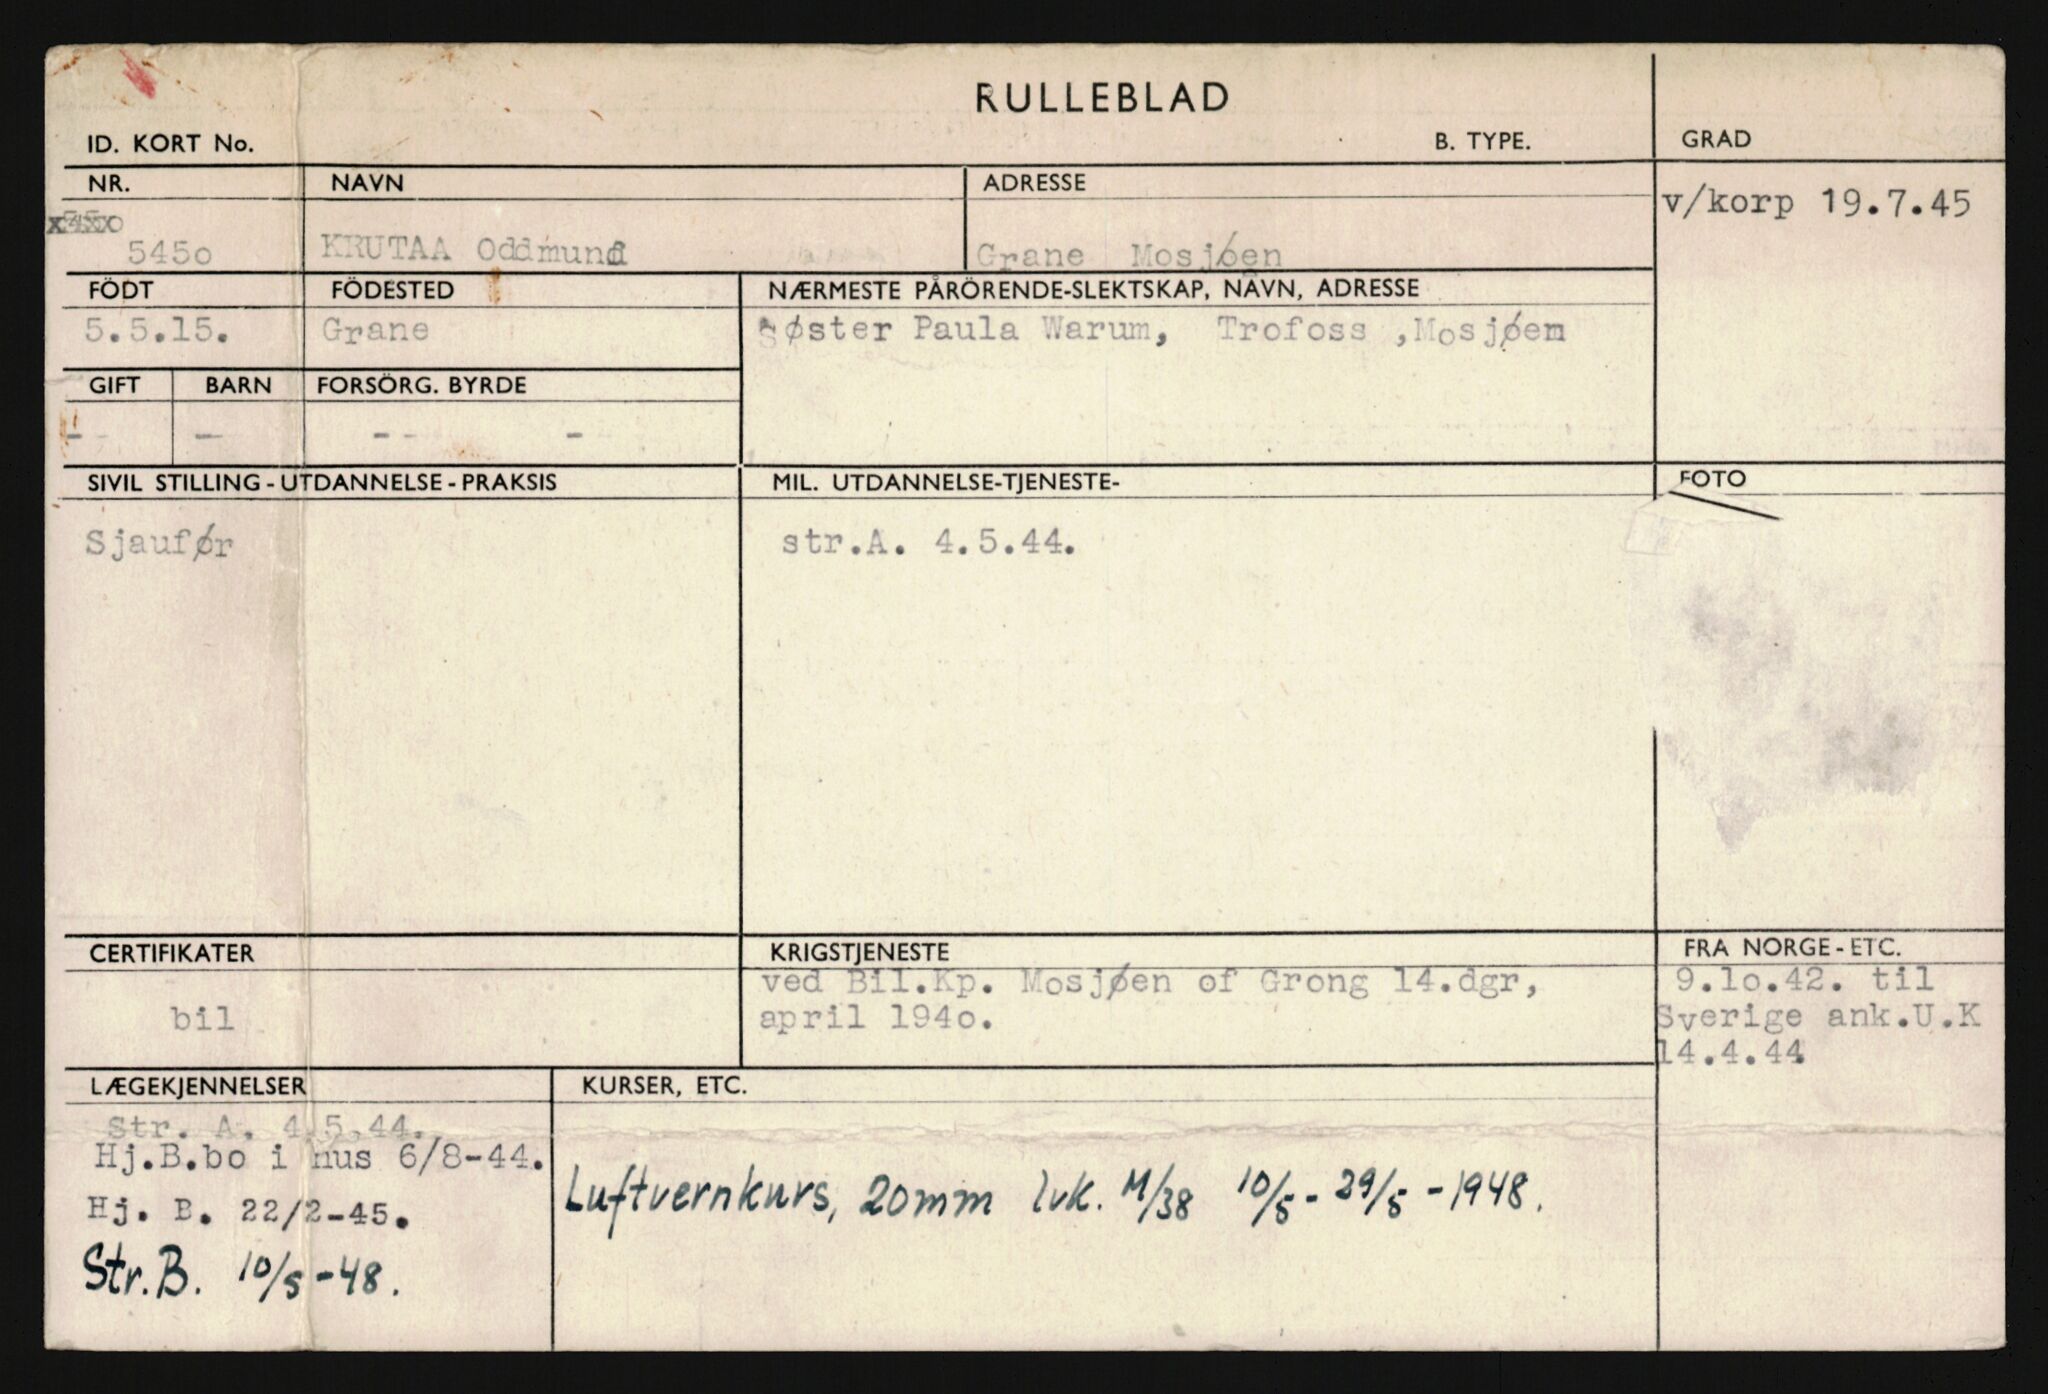 RULLEBLAD
ID. KORT No. B. TYPE. GRAD
NR. NAVN ADRESSE
v/korp 19.7.45
545o KRUTAA Oddmund Grane Mosjøen
FÖDT FÖDESTED NÆRMESTE PÅRÖRENDE-SLEKTSKAP, NAVN, ADRESSE
5.5.15. Grane Søster Paula Warum, Trofoss ,Mosjøen
GIFT BARN FORSÖRG. BYRDE
- - - - -
SIVIL STILLING - UTDANNELSE - PRAKSIS MIL. UTDANNELSE-TJENESTE- FOTO
Sjaufør str.A. 4.5.44.
CERTIFIKATER KRIGSTJENESTE FRA NORGE - ETC.
ved Bil.Kp. Mosjøen of Grong 14.dgr, 9.1o.42. til
bil april 194o. Sverige ank.U.K
14.4.44
LÆGEKJENNELSER KURSER, ETC.
Str. A. 4.5.44.
Hj.B.bo i hus 6/8-44.
Luftvernkurs, 20mm lvk. M/38 10/5 - 29/5 - 1948.
Hj. B. 22/2-45.
Str.B. 10/5 -48.